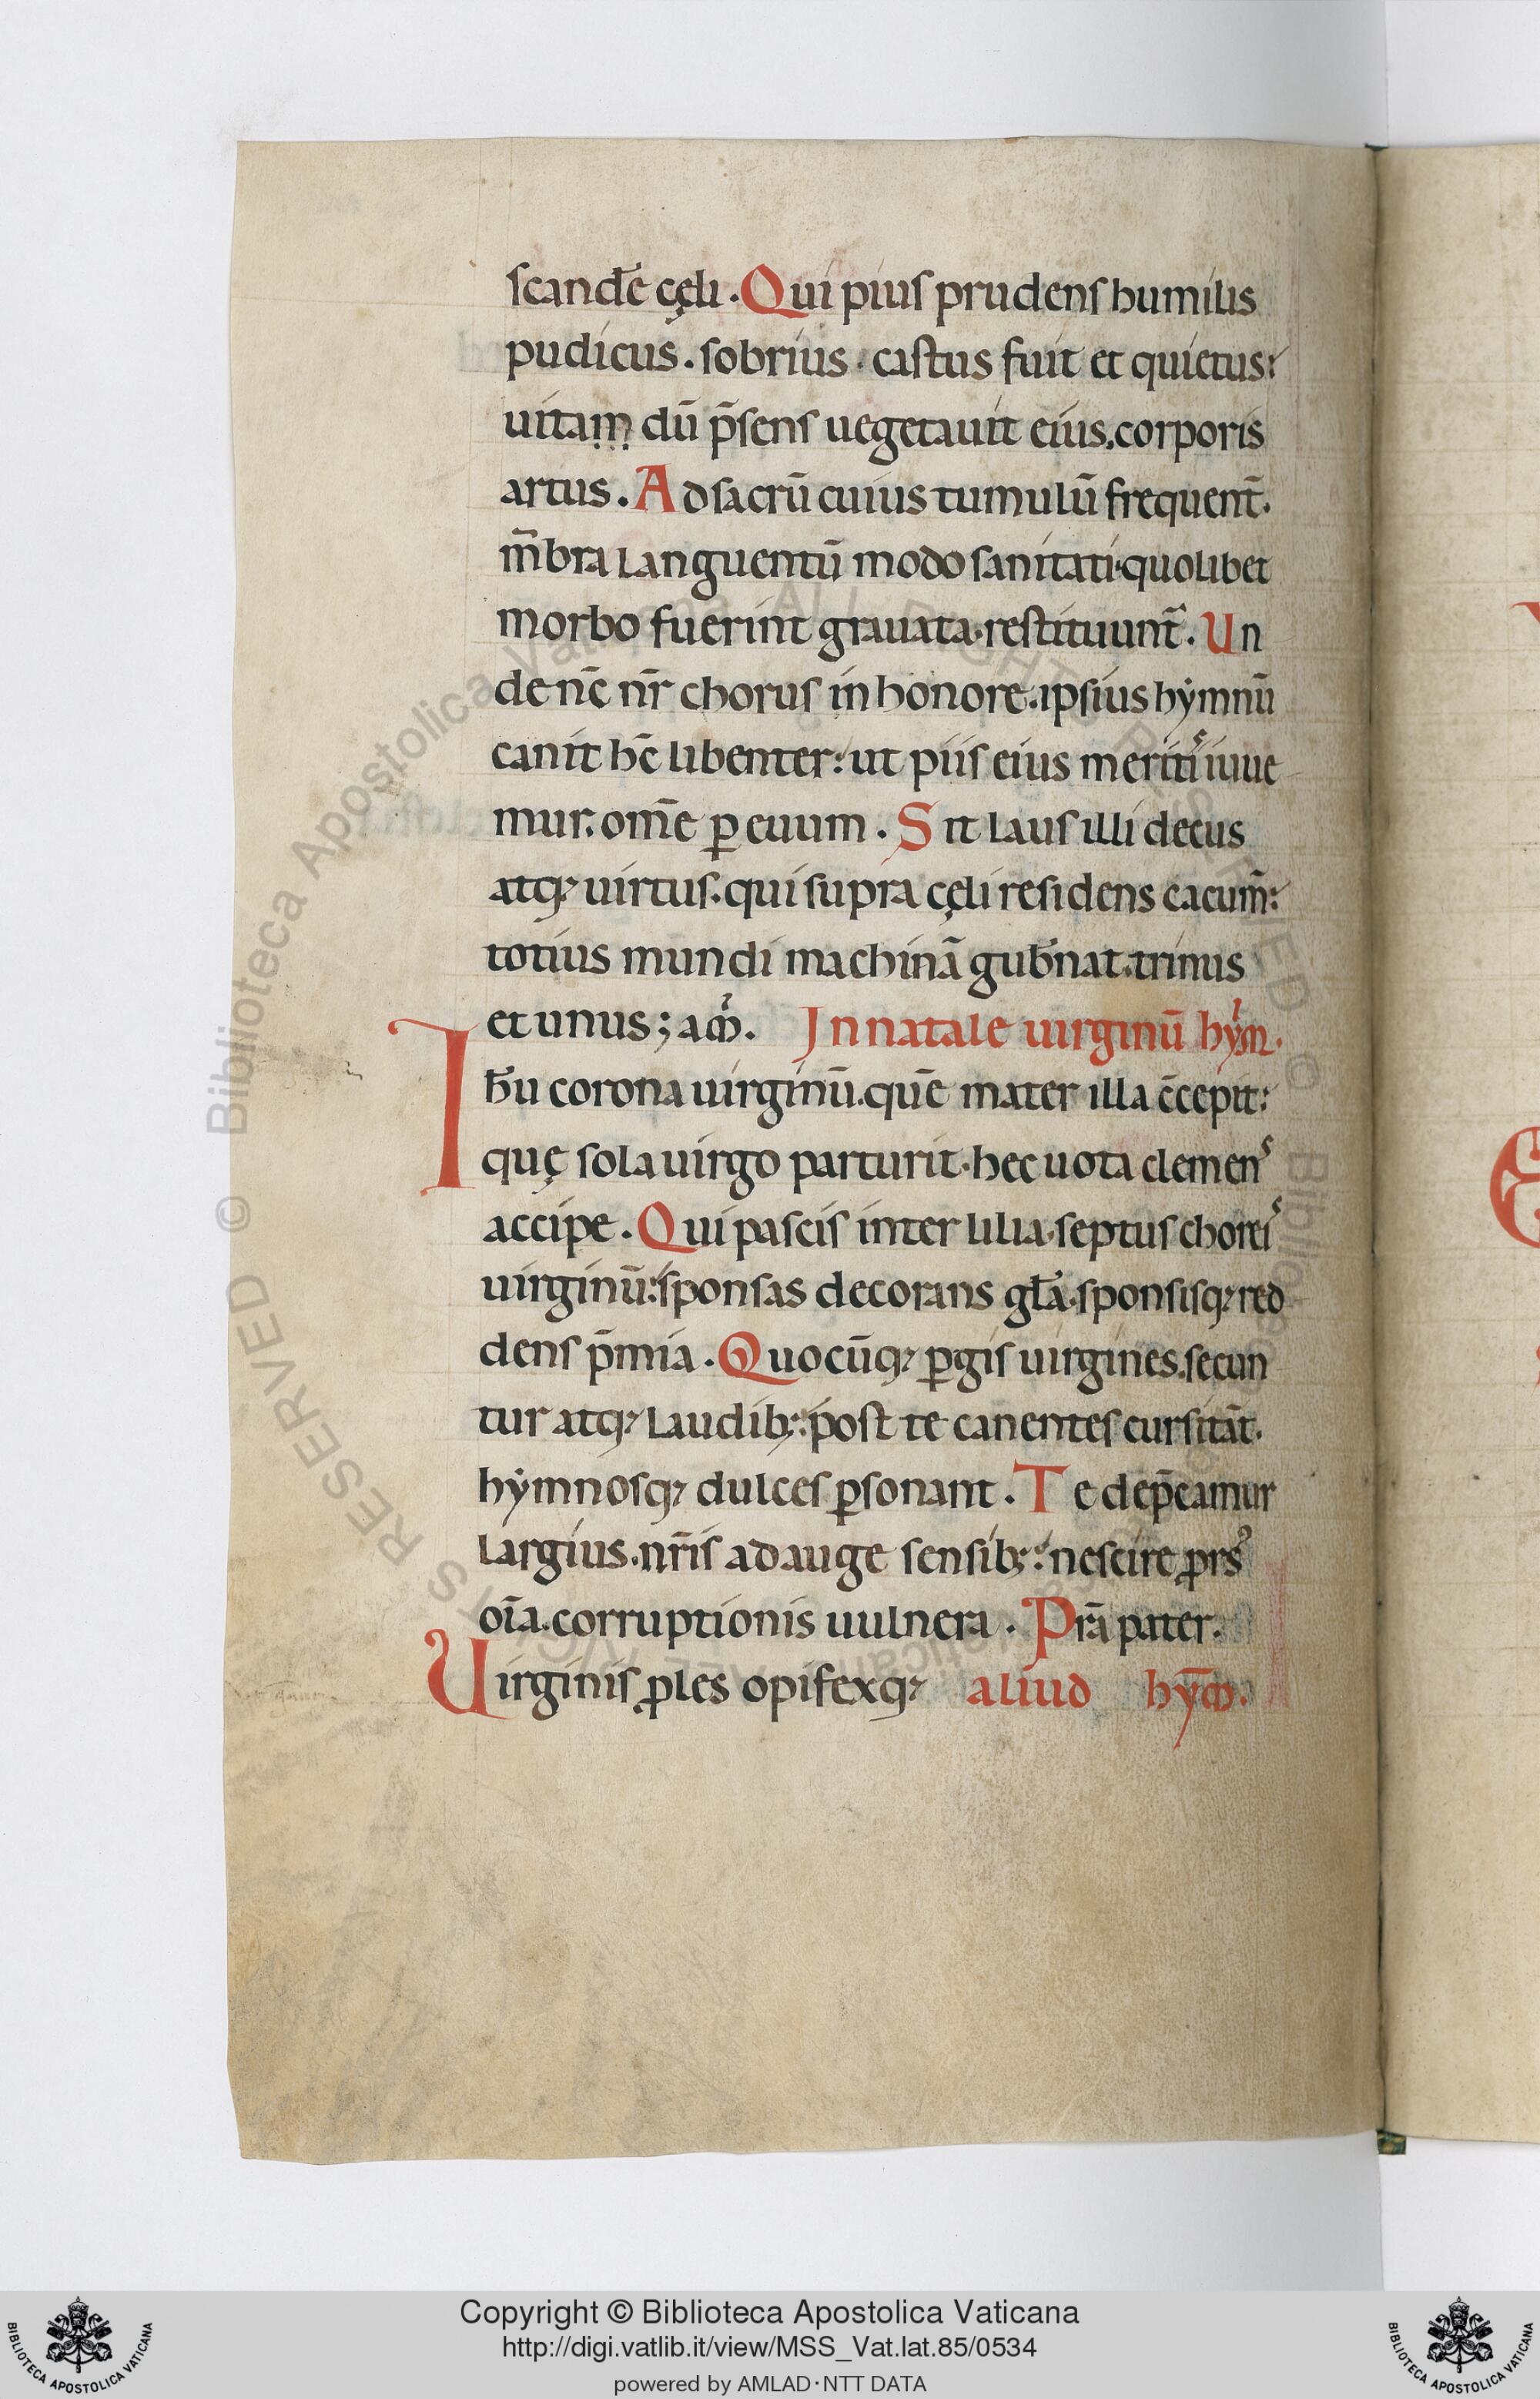 scand̄e cęli. Qui pius prudens humilis
pudicus. sobrius. castus fuit et quietus:
uitam dū p̄sens uegetauit eius. corporis
artus. Ad sacrū cuius tumulū frequent̄.
m̄bra languentū modo sanitati. quolibet
morbo fuerint grauata. restituunt̄. Un
de nc̄ nr̄ chorus in honore. ipsius hẏmnū
canit hc̄ libenter: ut piis eius meritis iuue
mur. om̄e ꝑ euum. Sit laus illi decus
atq; uirtus. qui supra cęli residens cacum̄:
totius mundi machinā gub̄nat. trinus
et unus; am̄. In natale uirginū hẏm̄.
Ih̄u corona uirginū. quē mater illa c̄cepit:
quę sola uirgo parturit. hec uota clemens
accipe. Qui pascis inter lilia. septus choreis
uirginū: sponsas decorans gl̄a. sponsisq; red
dens p̄mia. Quocūq; ꝑgis uirgines. secun
tur atq; laudib;: post te canentes cursitāt.
hẏmnosq; dulces ꝑsonant. Te dep̄camur
largius. nr̄is adauge sensib;: nescire ꝓrsꝰ
oī̄a. corruptionis uulnera. Prā pater.
Uirginis ꝓles opifexq; aliud hẏm̄.
© Biblioteca Apostolica Vaticana ALL RIGHTS RESERVED
Copyright © Biblioteca Apostolica Vaticana
http://digi.vatlib.it/view/MSS_Vat.lat.85/0534
powered by AMLAD·NTT DATA
BIBLIOTECA APOSTOLICA VATICANA
BIBLIOTECA APOSTOLICA VATICANA